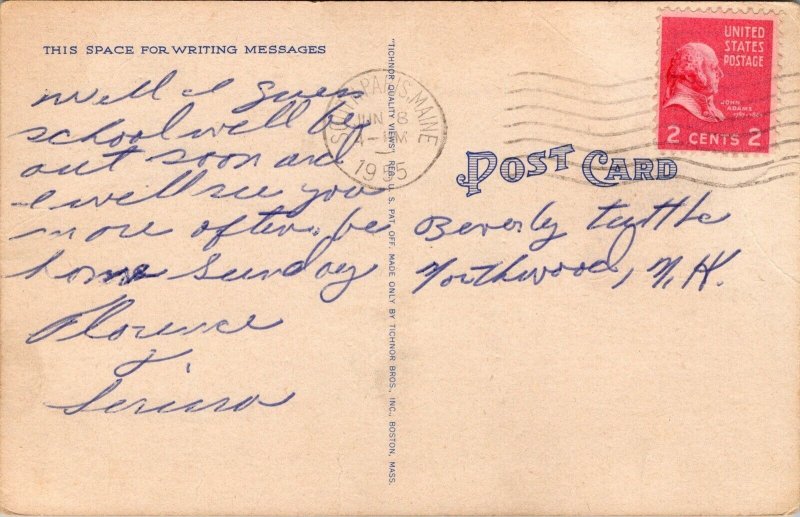 THIS SPACE FOR WRITING MESSAGES
Well I guess
school well be
out soon and
I well see you
more often. be
home Sunday
Florence
"TICHNOR QUALITY VIEWS" REG. U. S. PAT. OFF. MADE ONLY BY TICHNOR BROS., INC., BOSTON, MASS.
SOUTH PARIS, MAINE
JUN 8
4-PM
1955
UNITED
STATES
POSTAGE
JOHN
ADAMS
2 CENTS 2
POST CARD
Beverly Tuttle
Northwood, N.H.